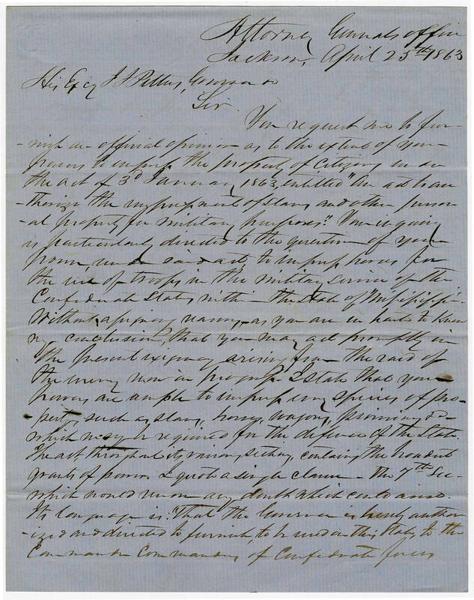 Attorney Generals office
Jackson, April 25th 1863
His Excy J J Pettus, Governor &c
Sir
You request me to fur-
-nish an official opinion as to the extent of your
powers to impress the property of Citizens under
the act of 3d January 1863, entitled "An act to au-
-thorize the impressment of slaves and other person-
-al property for military purposes." Your inquiry
is particularly directed to the question of your
power, under said act, to impress horses for
the use of troops in the military service of the
Confederate States within the State of Mississippi.
Without assigning reasons, as you are in haste to know
my conclusion, that you may act promptly in
the present exigency arising from the raid of
the enemy now in progress I state that your
powers are ample to impress any species of pro-
-perty, such as slaves, horses, wagons, provisions &c
which may be required for the defence of the State.
The act throughout its various sections, contains the broadest
grants of power. I quote a single clause - the 7th Sec
which would remove any doubt which could arise.
Its language is: "That the Governor is hereby author-
-ized and directed to furnish to be used in this State, to the
Commander or Commanders of Confederate forces